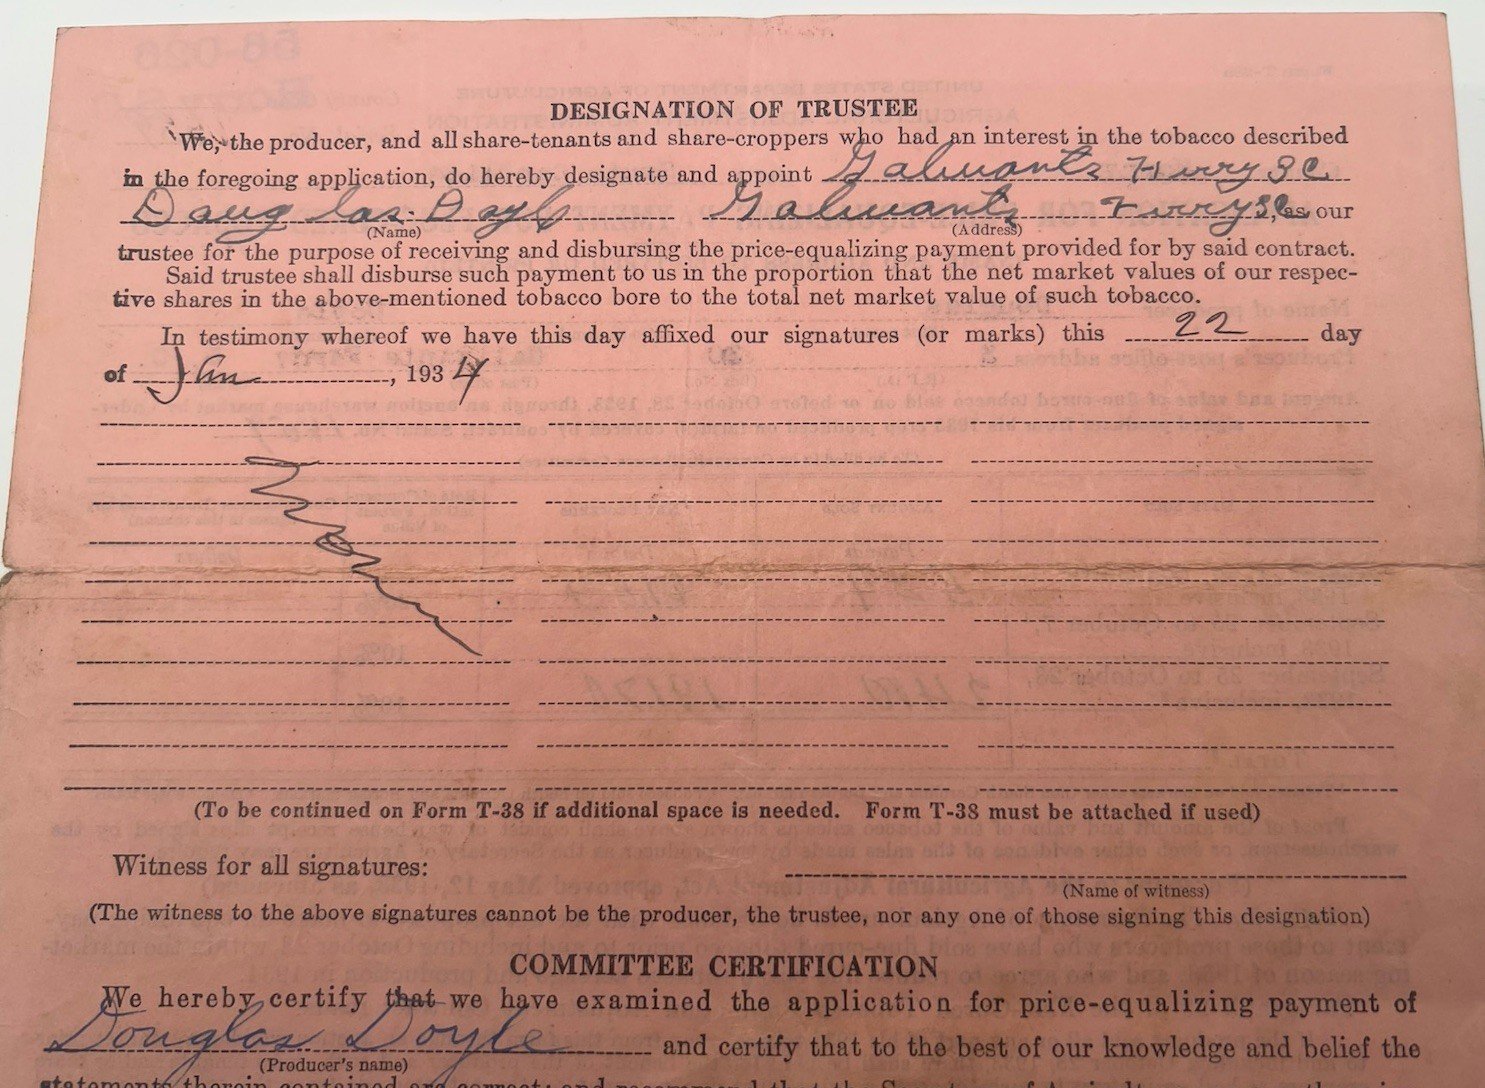 DESIGNATION OF TRUSTEE
We, the producer, and all share-tenants and share-croppers who had an interest in the tobacco described
in the foregoing application, do hereby designate and appoint Galivants Ferry S C
Douglas Doyle Galivants Ferry S C, as our
(Name) (Address)
trustee for the purpose of receiving and disbursing the price-equalizing payment provided for by said contract.
Said trustee shall disburse such payment to us in the proportion that the net market values of our respec-
tive shares in the above-mentioned tobacco bore to the total net market value of such tobacco.
In testimony whereof we have this day affixed our signatures (or marks) this 22 day
of Jan, 1934
(To be continued on Form T-38 if additional space is needed. Form T-38 must be attached if used)
Witness for all signatures:
(Name of witness)
(The witness to the above signatures cannot be the producer, the trustee, nor any one of those signing this designation)
COMMITTEE CERTIFICATION
We hereby certify that we have examined the application for price-equalizing payment of
Douglas Doyle and certify that to the best of our knowledge and belief the
(Producer's name)
statements therein contained are correct; and recommend that the Secretary of